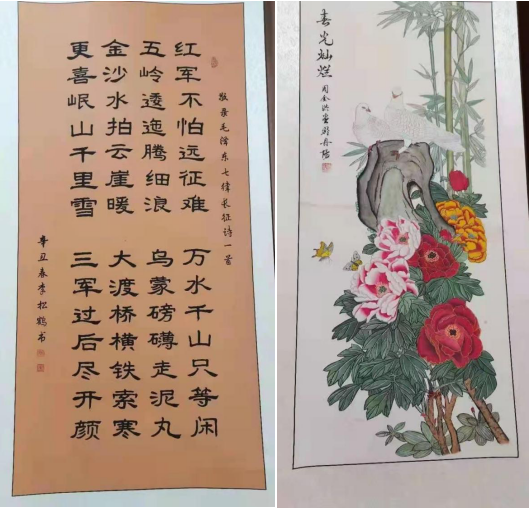 敬录毛澤东七律长征诗一首
红军不怕远征难 万水千山只等闲
五岭逶迤腾细浪 乌蒙磅礴走泥丸
金沙水拍云崖暖 大渡桥横铁索寒
更喜岷山千里雪 三军过后尽开颜
辛丑春李松鹤书
春光灿烂